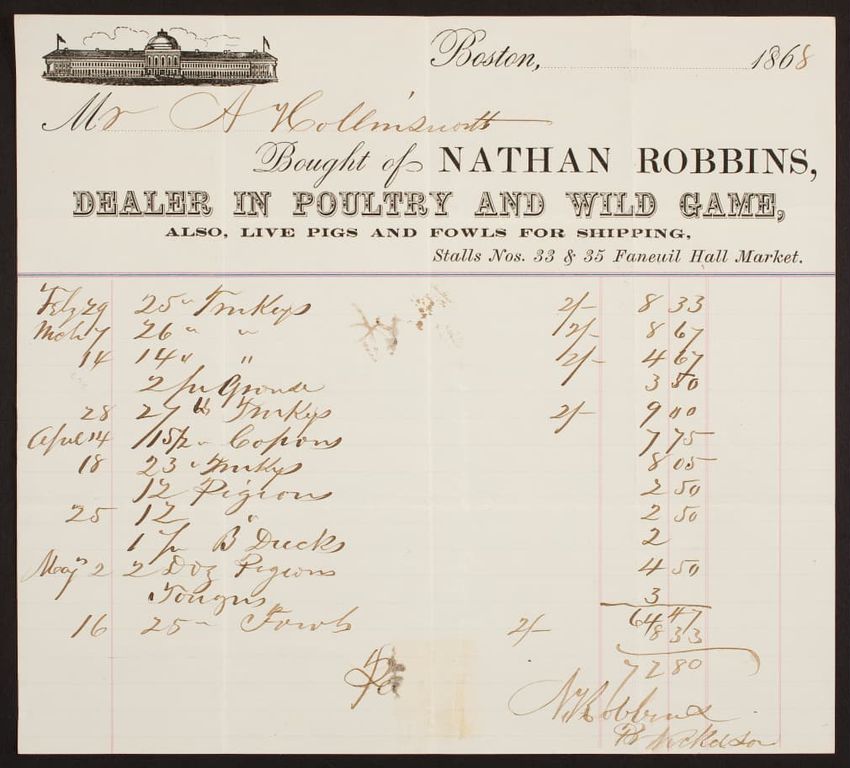 Boston, 1868
Mr A Hollinsworth
Bought of NATHAN ROBBINS,
DEALER IN POULTRY AND WILD GAME,
ALSO, LIVE PIGS AND FOWLS FOR SHIPPING,
Stalls Nos. 33 & 35 Faneuil Hall Market.
Feb 29 25 " Turkeys 2/- 8 33
Mch 7 26 " " 2/- 8 67
14 14 " " 2/- 4 67
2 pr Grouse 3 50
28 27 lb Turkeys 2/- 9 00
April 14 15 1/2 " Capons 7 75
18 23 " Turkeys 8 05
12 Pigeons 2 50
25 12 " 2 50
1 pr B Ducks 2
May 2 2 Doz Pigeons 4 50
Tongus 3
64 47
16 25 " Fowls 2/- 8 33
72 80
Pd
N. Robbins